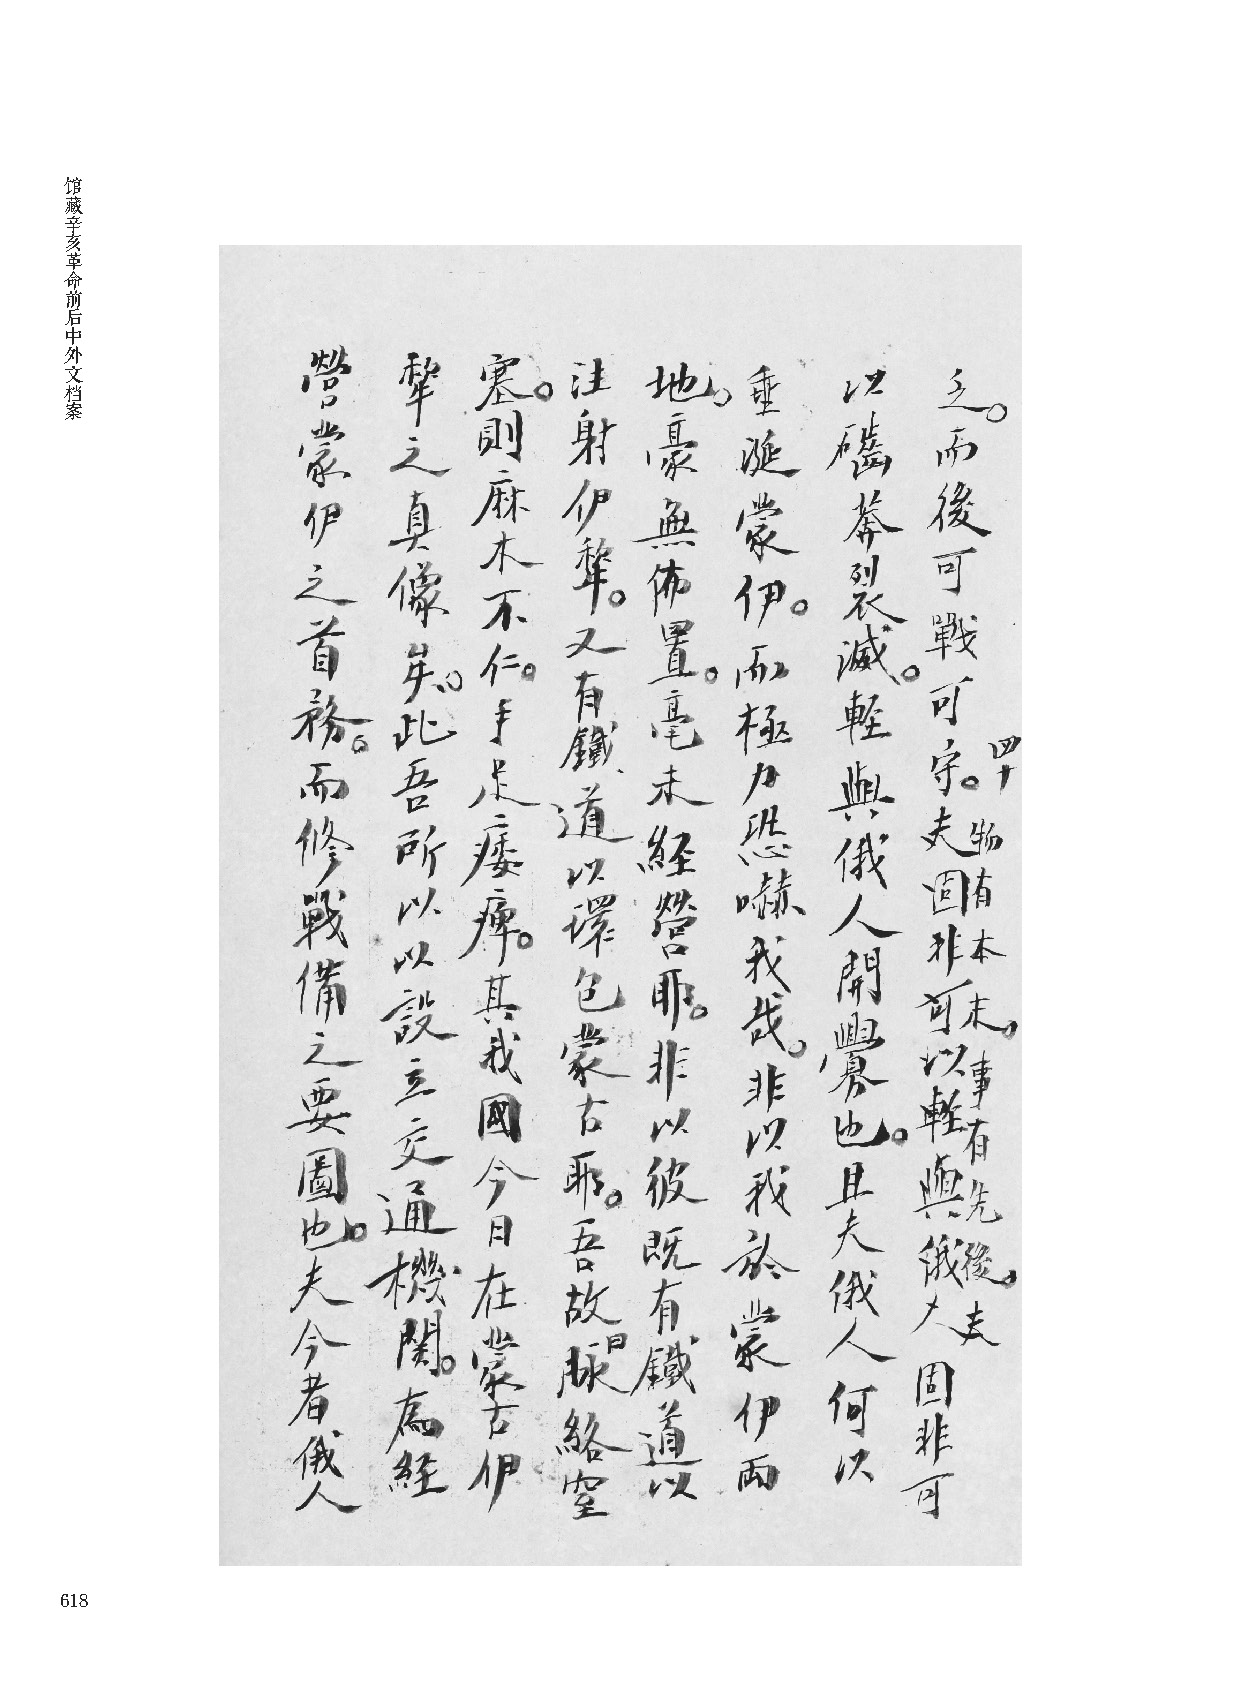 馆藏辛亥革命前后中外文档案
乏。而後可戰可守。夫固非可以輕與俄人固非可
四十
物有本末。事有先後。夫
以磠莽裂滅。輕與俄人開釁也。且夫俄人何以
垂涎蒙伊。而極力恐嚇我哉。非以我於蒙伊兩
地。豪無佈置。毫未經營耶。非以彼既有鐵道以
注射伊犂。又有鐵道以環包蒙古耶。吾故曰脉絡窒
塞。則麻木不仁。手足痿痺。其我國今日在蒙古伊
犂之真像矣。此吾所以以設立交通機關。為經
營蒙伊之首務。而修戰備之要圖也。夫今者俄人
618